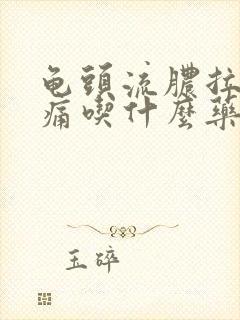 龟頭流膿拉
痛喫什麼藥
玉碎